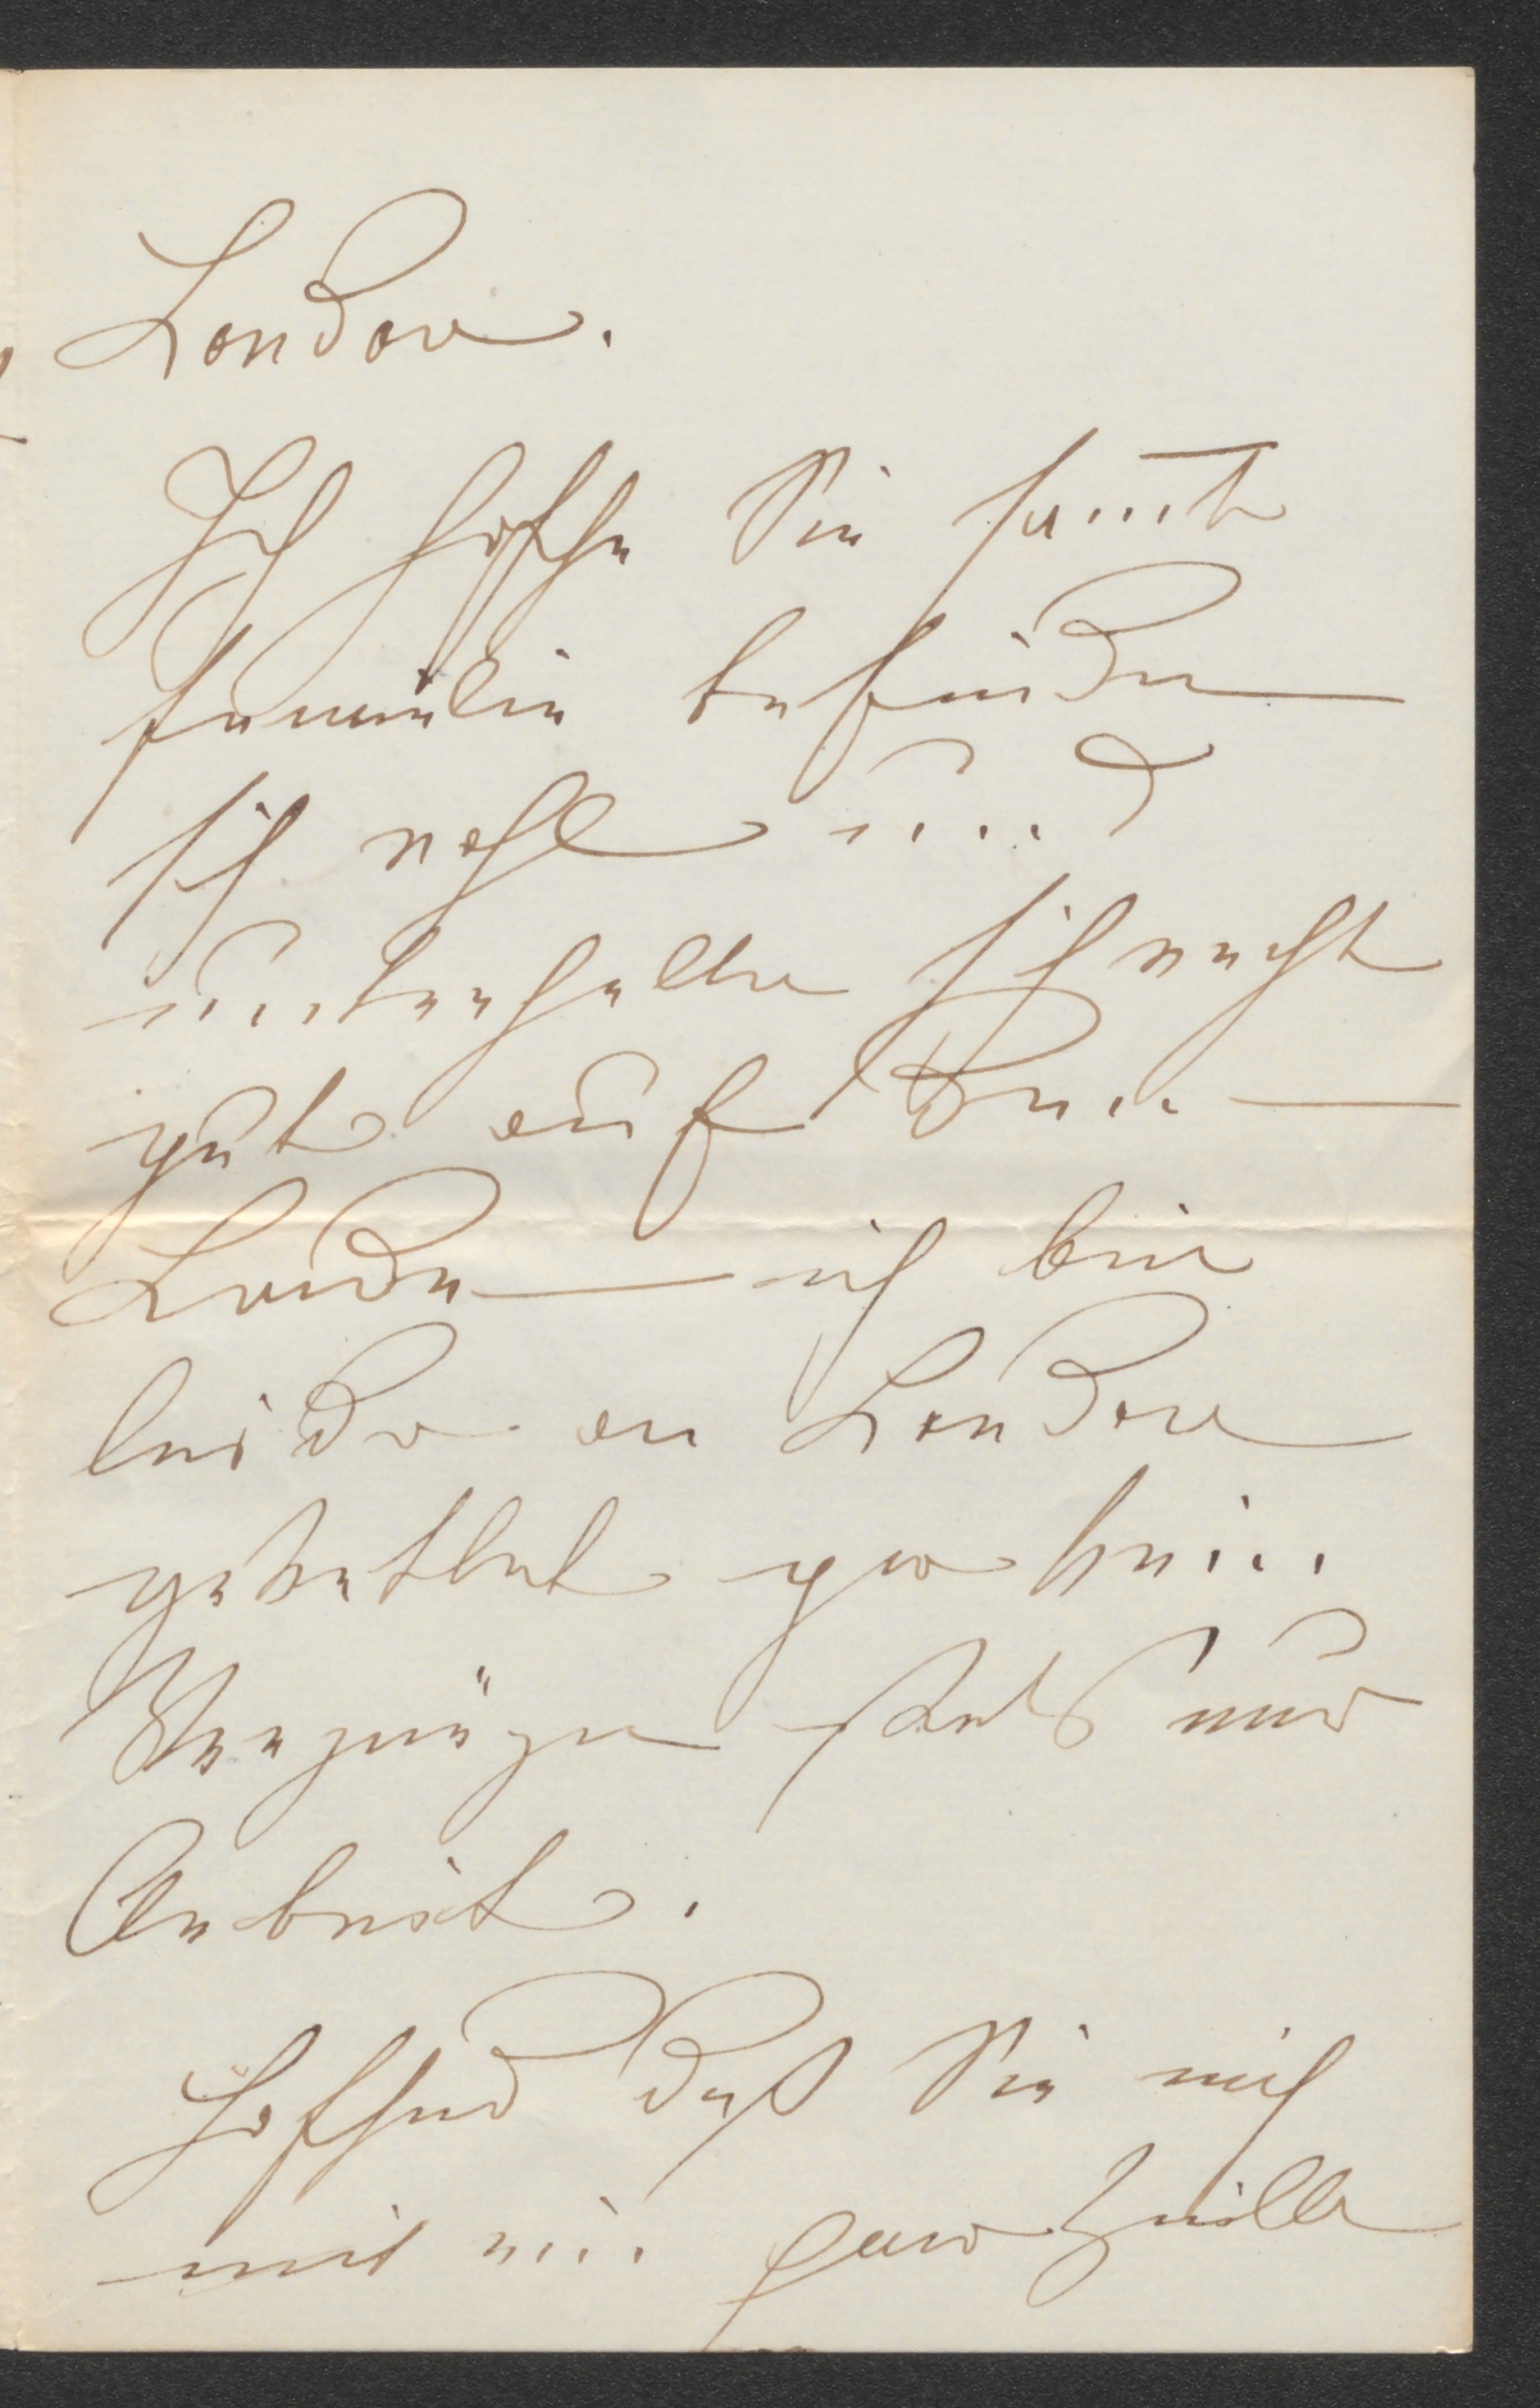 London.
Ich hoffe Sie samt
Familie befinden
sich wohl und
unterhalten sich recht
gut auf dem
Lande ich bin
leider an London
gekettet gar kein
Vergnügen stets nur
Arbeit.
Hoffend daß Sie mich
mit ein paar Zeilen